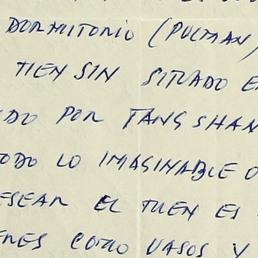 DORMITORIO (PULMAN)
TIEN SIN SITUADO E
DO POR TANG SHAN
ODO LO IMAGINABLE O
ESEAR EL TUEN ES
ENES COMO VASOS Y